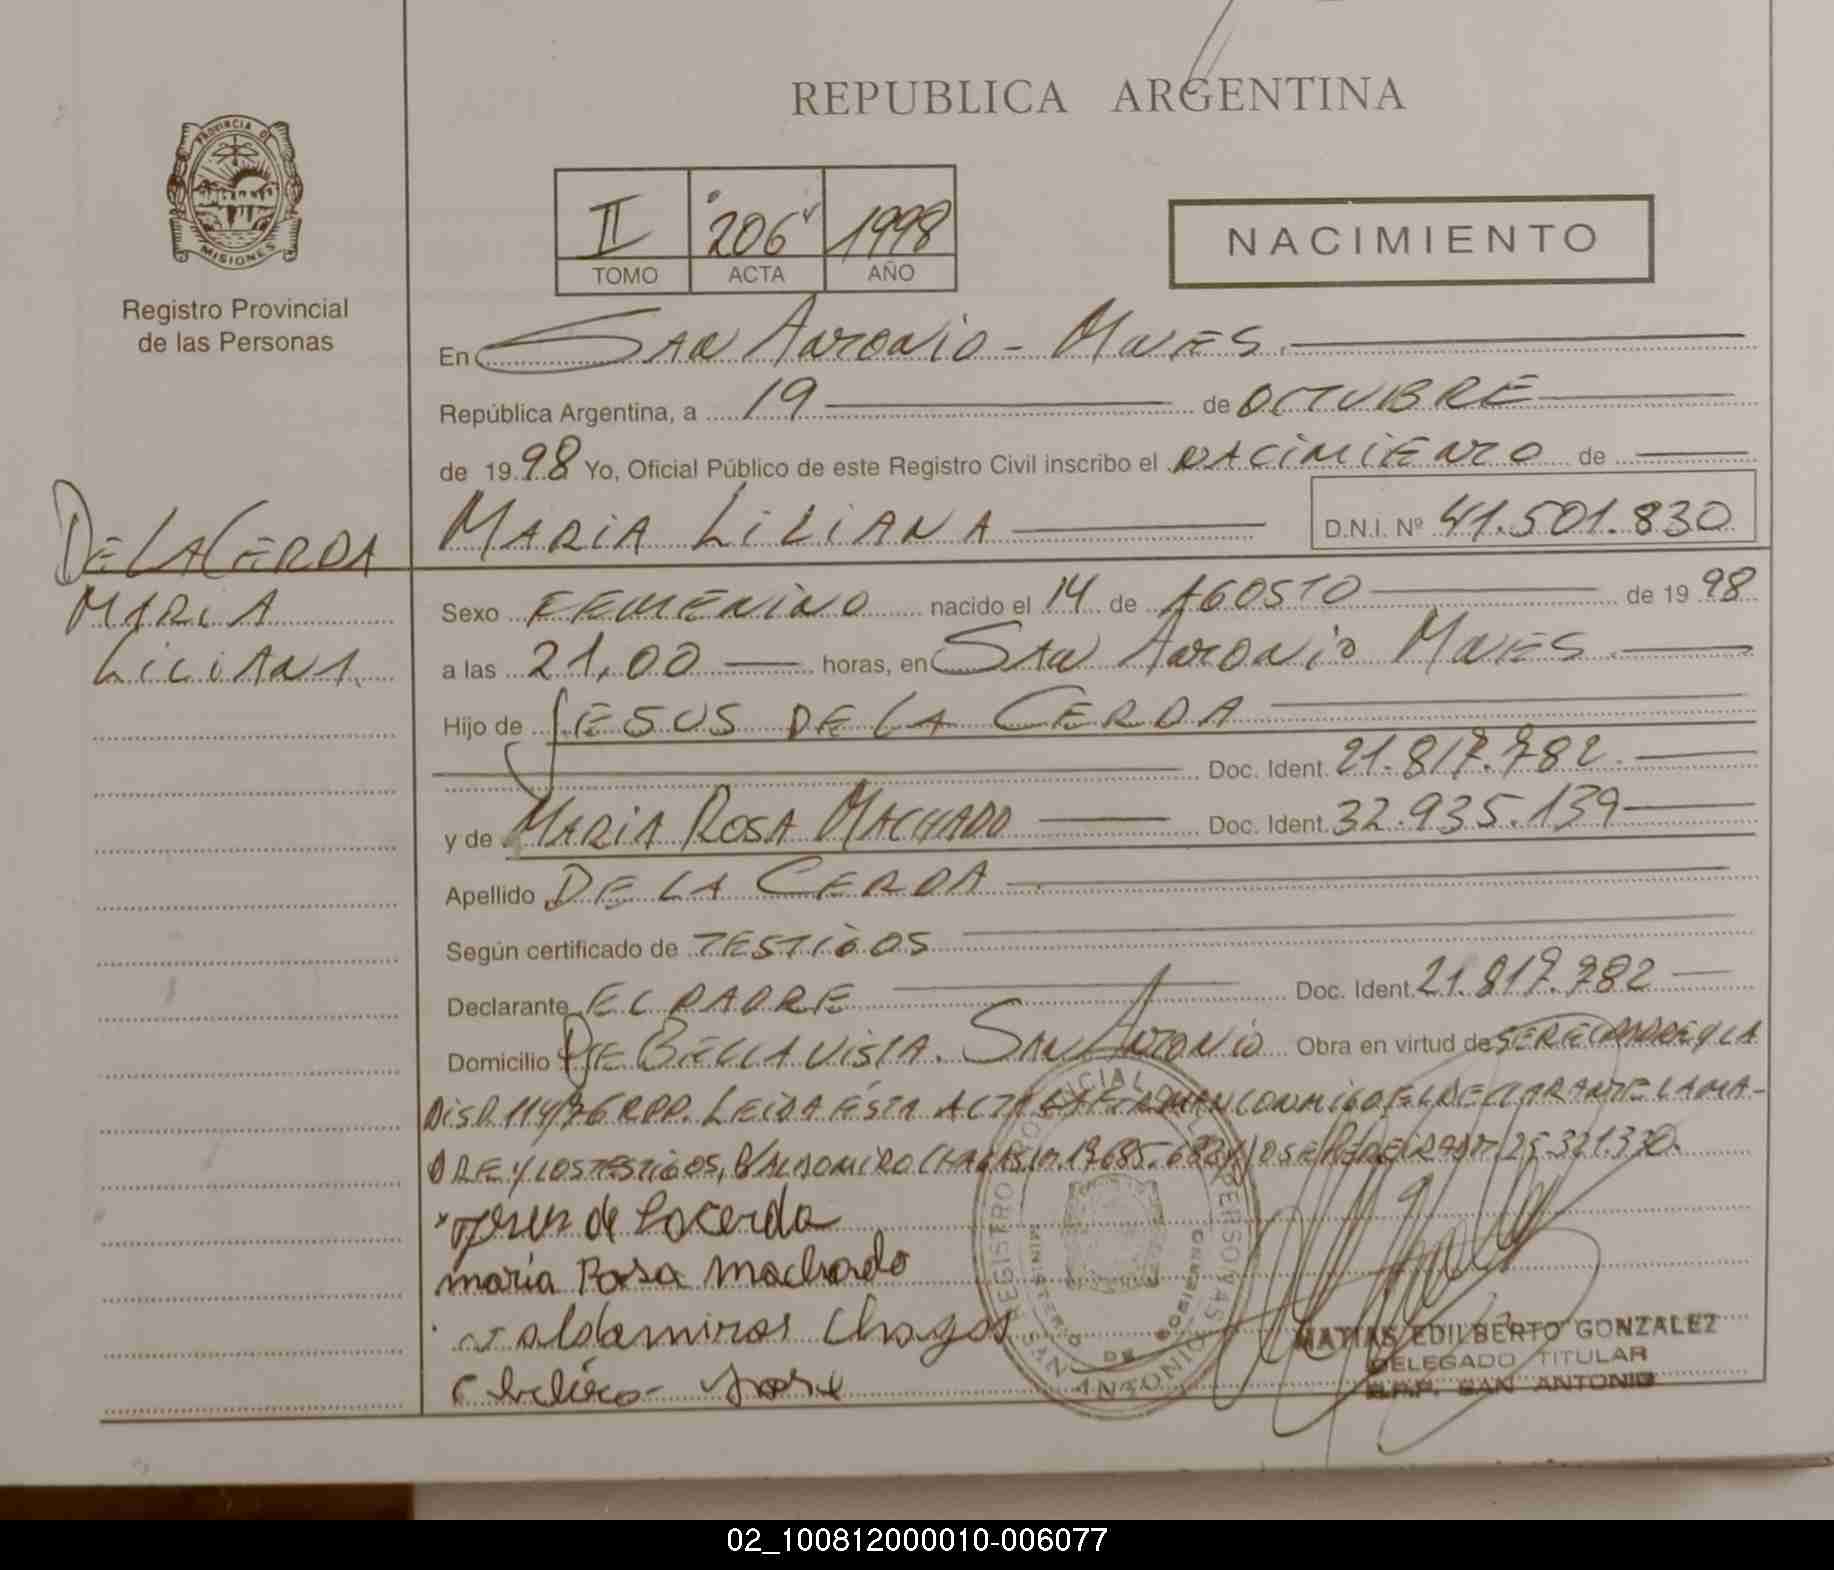 REPUBLICA ARGENTINA
PROVINCIA DE
MISIONES
Registro Provincial
de las Personas
II 206 1998
TOMO ACTA AÑO
NACIMIENTO
En SAN ANTONIO - MNES.
República Argentina, a 19 de OCTUBRE
de 1998 Yo, Oficial Público de este Registro Civil inscribo el NACIMIENTO de
MARIA LILIANA D.N.I. Nº 41.501.830
DE LA CERDA
MARIA
LILIANA.
Sexo FEMENINO nacido el 14 de AGOSTO de 1998
a las 21,00 horas, en SAN ANTONIO MNES
Hijo de JESUS DE LA CERDA
Doc. Ident. 21.817.782.
y de MARIA ROSA MACHADO Doc. Ident. 32.935.139
Apellido DE LA CERDA
Según certificado de TESTIGOS
Declarante EL PADRE Doc. Ident. 21.817.782
Domicilio BELLA VISTA. SAN ANTONIO Obra en virtud de SER EL PADRE Y LA
DISP. 114/76 RPP. LEIDA ÉSTA ACTA FIRMAN CONMIGO EL DECLARANTE LA MA-
DRE Y LOS TESTIGOS, VALDOMIRO CHAGAS 25.321.330.
de Lacerda
maria Rosa machado
valdamiros Chagas
Jose
REGISTRO PROVINCIAL DE LAS PERSONAS
MINISTERIO DE GOBIERNO
SAN ANTONIO
MATIAS EDILBERTO GONZALEZ
DELEGADO TITULAR
R.P.P. SAN ANTONIO
02_100812000010-006077